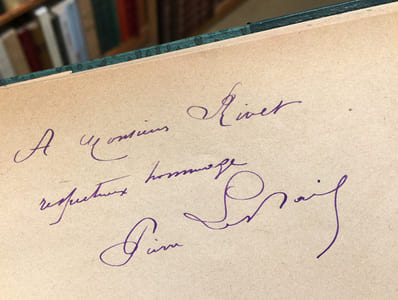 A Monsieur Rivet
respectueux hommage
Pierre